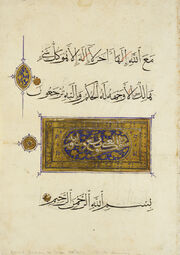 مع الله إلها آخر لا إله إلا هو كل شيء
هالك إلا وجهه له الحكم وإليه ترجعون
بسم الله الرحمن الرحيم